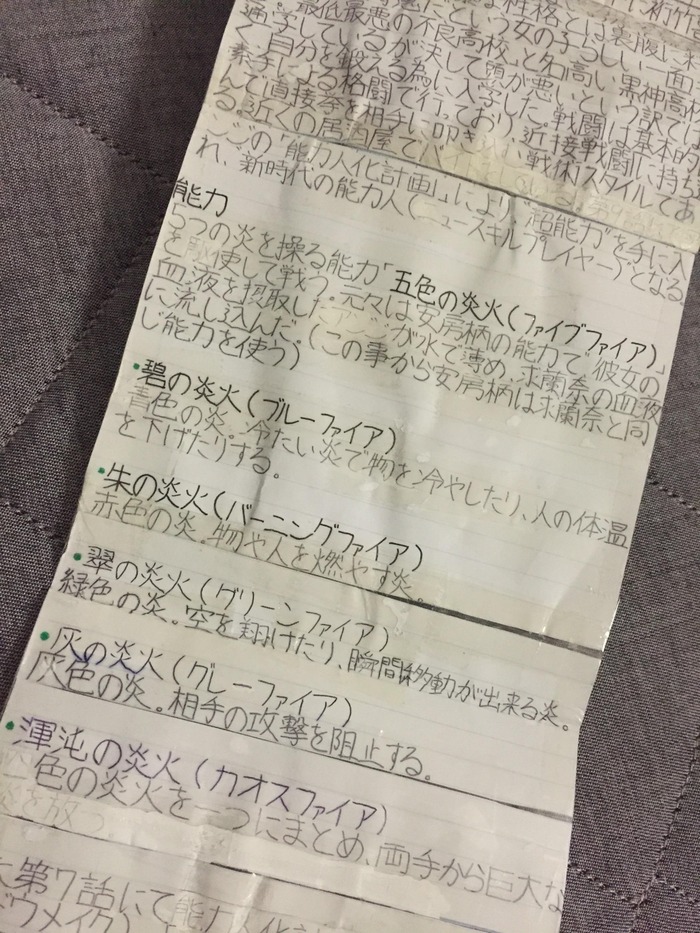 性格とは裏腹に
という女の子らしい一面
最低最悪の不良高校」と名高い黒神高校
通学しているが決して頭が悪いという訳では
く、自分を鍛える為に入学した。戦闘は基本的
素手による格闘で行っており、近接戦闘に持ち
んで直接拳を相手に叩き 戦術スタイルであ
る。近くの居酒屋でバ
の「能力人化計画」により“超能力”を手に入
れ、新時代の能力人(ニュースキルプレイヤー)となる
能力
5つの炎を操る能力「五色の炎火(ファイブファイア)」
を 使して戦う。元々は安房柄の能力で、彼女の
血液を摂取した が水で薄め、求蘭奈の血液
に流し込んだ。(この事から安房柄は求蘭奈と同
じ能力を使う)
・碧の炎火(ブルーファイア)
青色の炎。冷たい炎で物を冷やしたり、人の体温
を下げたりする。
・朱の炎火(バーニングファイア)
赤色の炎。物や人を燃やす炎。
・翠の炎火(グリーンファイア)
緑色の炎。空を翔けたり、瞬間移動が出来る炎。
・灰の炎火(グレーファイア)
灰色の炎。相手の攻撃を阻止する。
・渾沌の炎火(カオスファイア)
色の炎火を一つにまとめ、両手から巨大な
炎を放つ。
第7話にて能力人化計
ウメイク)